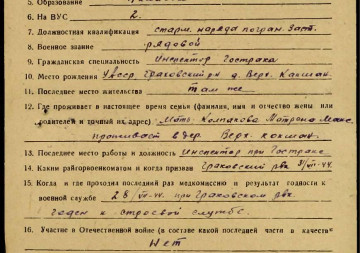 5. Образование
6. На ВУС 2
7. Должностная квалификация старш. наряда погран. Заст.
8. Военное звание рядовой
9. Гражданская специальность Инспектор Госстраха
10. Место рождения Удсср. Граховский р-н д. Верх. Кокшан
11. Последнее место жительства там же
12. Где проживает в настоящее время семья (фамилия, имя и отчество жены или
родителей и точный их адрес) Мать Колпакова Матрона Макс.
проживает в дер. Верх. Кокшан.
13. Последнее место работы и должность Инспектор при Госстрахе
14. Каким райгорвоенкоматом и когда призван Граховский рвк 31/VII-44.
15. Когда и где проходил последний раз медкомиссию и результат годности к
военной службе 28/VII-44. при Граховском рвк
годен к строевой службе.
16. Участие в Отечественной войне (в составе какой последней части в качестве
Нет